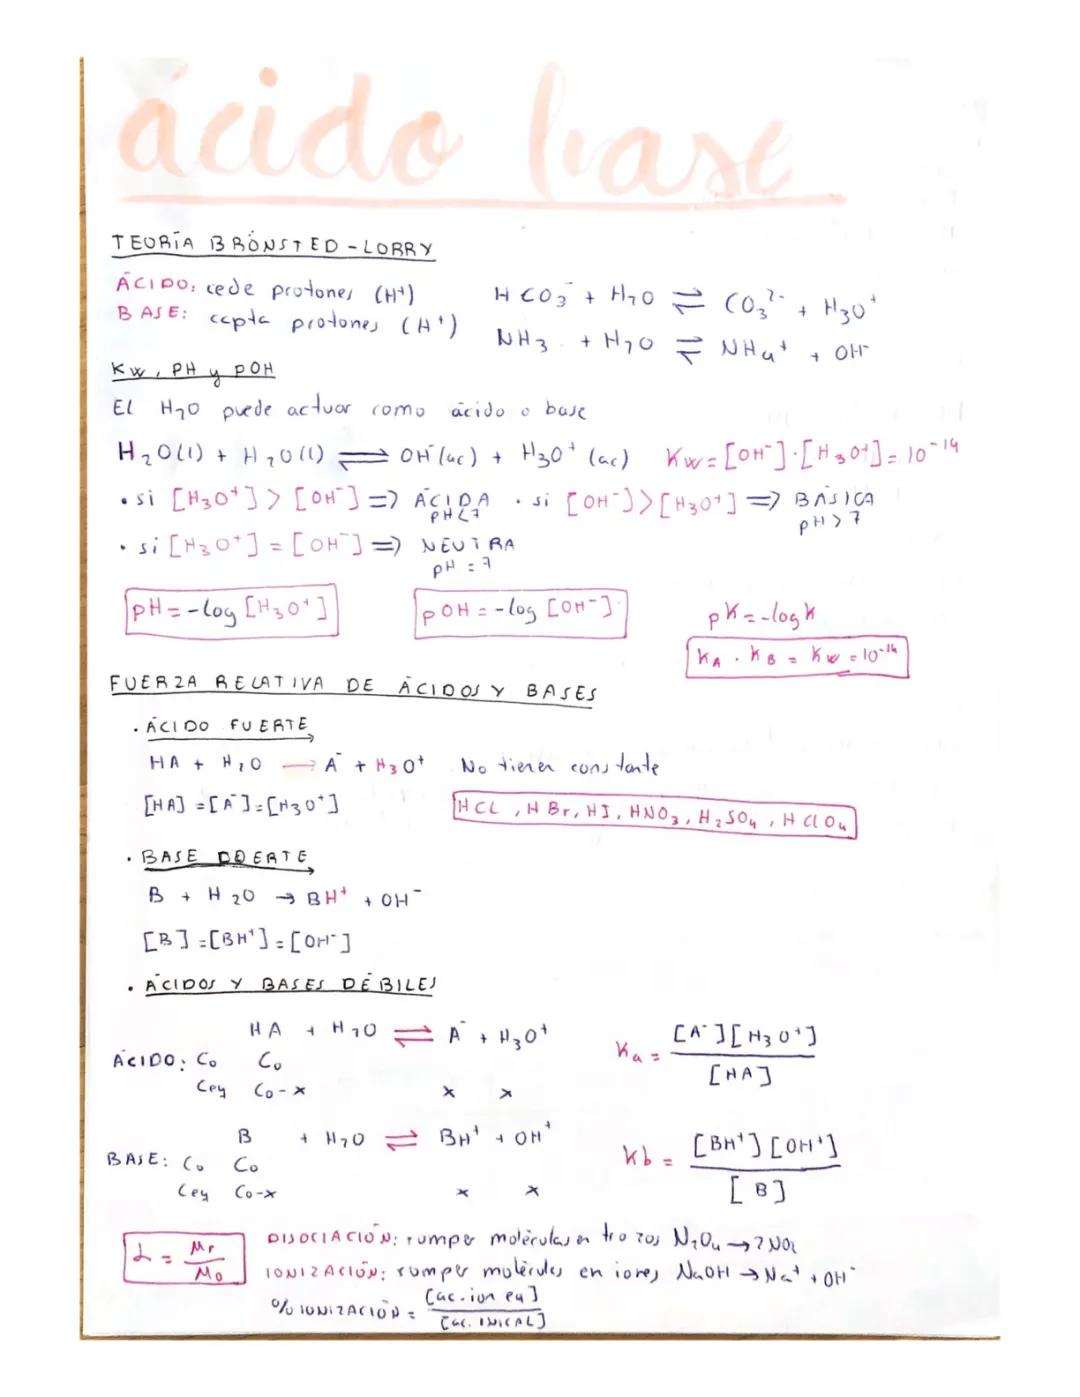 ácido base
TEORÍA BRÖNSTED-LORRY
ÁCIDO: cede protones (H⁺)
BASE: capta protones (H⁺)
HCO₃⁻ + H₂O ⇌ CO₃²⁻ + H₃O⁺
NH₃ + H₂O ⇌ NH₄⁺ + OH⁻
Kw, PH y POH
El H₂O puede actuar como ácido o base
H₂O(l) + H₂O(l) ⇌ OH⁻(ac) + H₃O⁺ (ac) Kw = [OH⁻]·[H₃O⁺] = 10⁻¹⁴
• si [H₃O⁺] > [OH⁻] => ÁCIDA • si [OH⁻] > [H₃O⁺] => BÁSICA
PH<7 pH>7
• si [H₃O⁺] = [OH⁻] => NEUTRA
pH = 7
pH = -log [H₃O⁺] pOH = -log [OH⁻] pK = -log K
KA · KB = Kw = 10⁻¹⁴
FUERZA RELATIVA DE ÁCIDOS Y BASES
• ÁCIDO FUERTE
HA + H₂O → A⁻ + H₃O⁺ No tienen constante
[HA] = [A⁻] = [H₃O⁺] HCL, HBr, HI, HNO₃, H₂SO₄, HClO₄
• BASE
B + H₂O → BH⁺ + OH⁻
[B] = [BH⁺] = [OH⁻]
• ÁCIDOS Y BASES DÉBILES
HA + H₂O ⇌ A⁻ + H₃O⁺ Ka = [A⁻][H₃O⁺] / [HA]
ÁCIDO: Co Co
Ceq Co-x x x
B + H₂O ⇌ BH⁺ + OH⁺ Kb = [BH⁺][OH⁺] / [B]
BASE: Co Co
Ceq Co-x x x
α = Mr / Mo
DISOCIACIÓN: romper moléculas en trozos N₂O₄ → 2NO₂
IONIZACIÓN: romper moléculas en iones NaOH → Na⁺ + OH⁻
% IONIZACIÓN = [ac. ion eq] / [ac. INICAL]